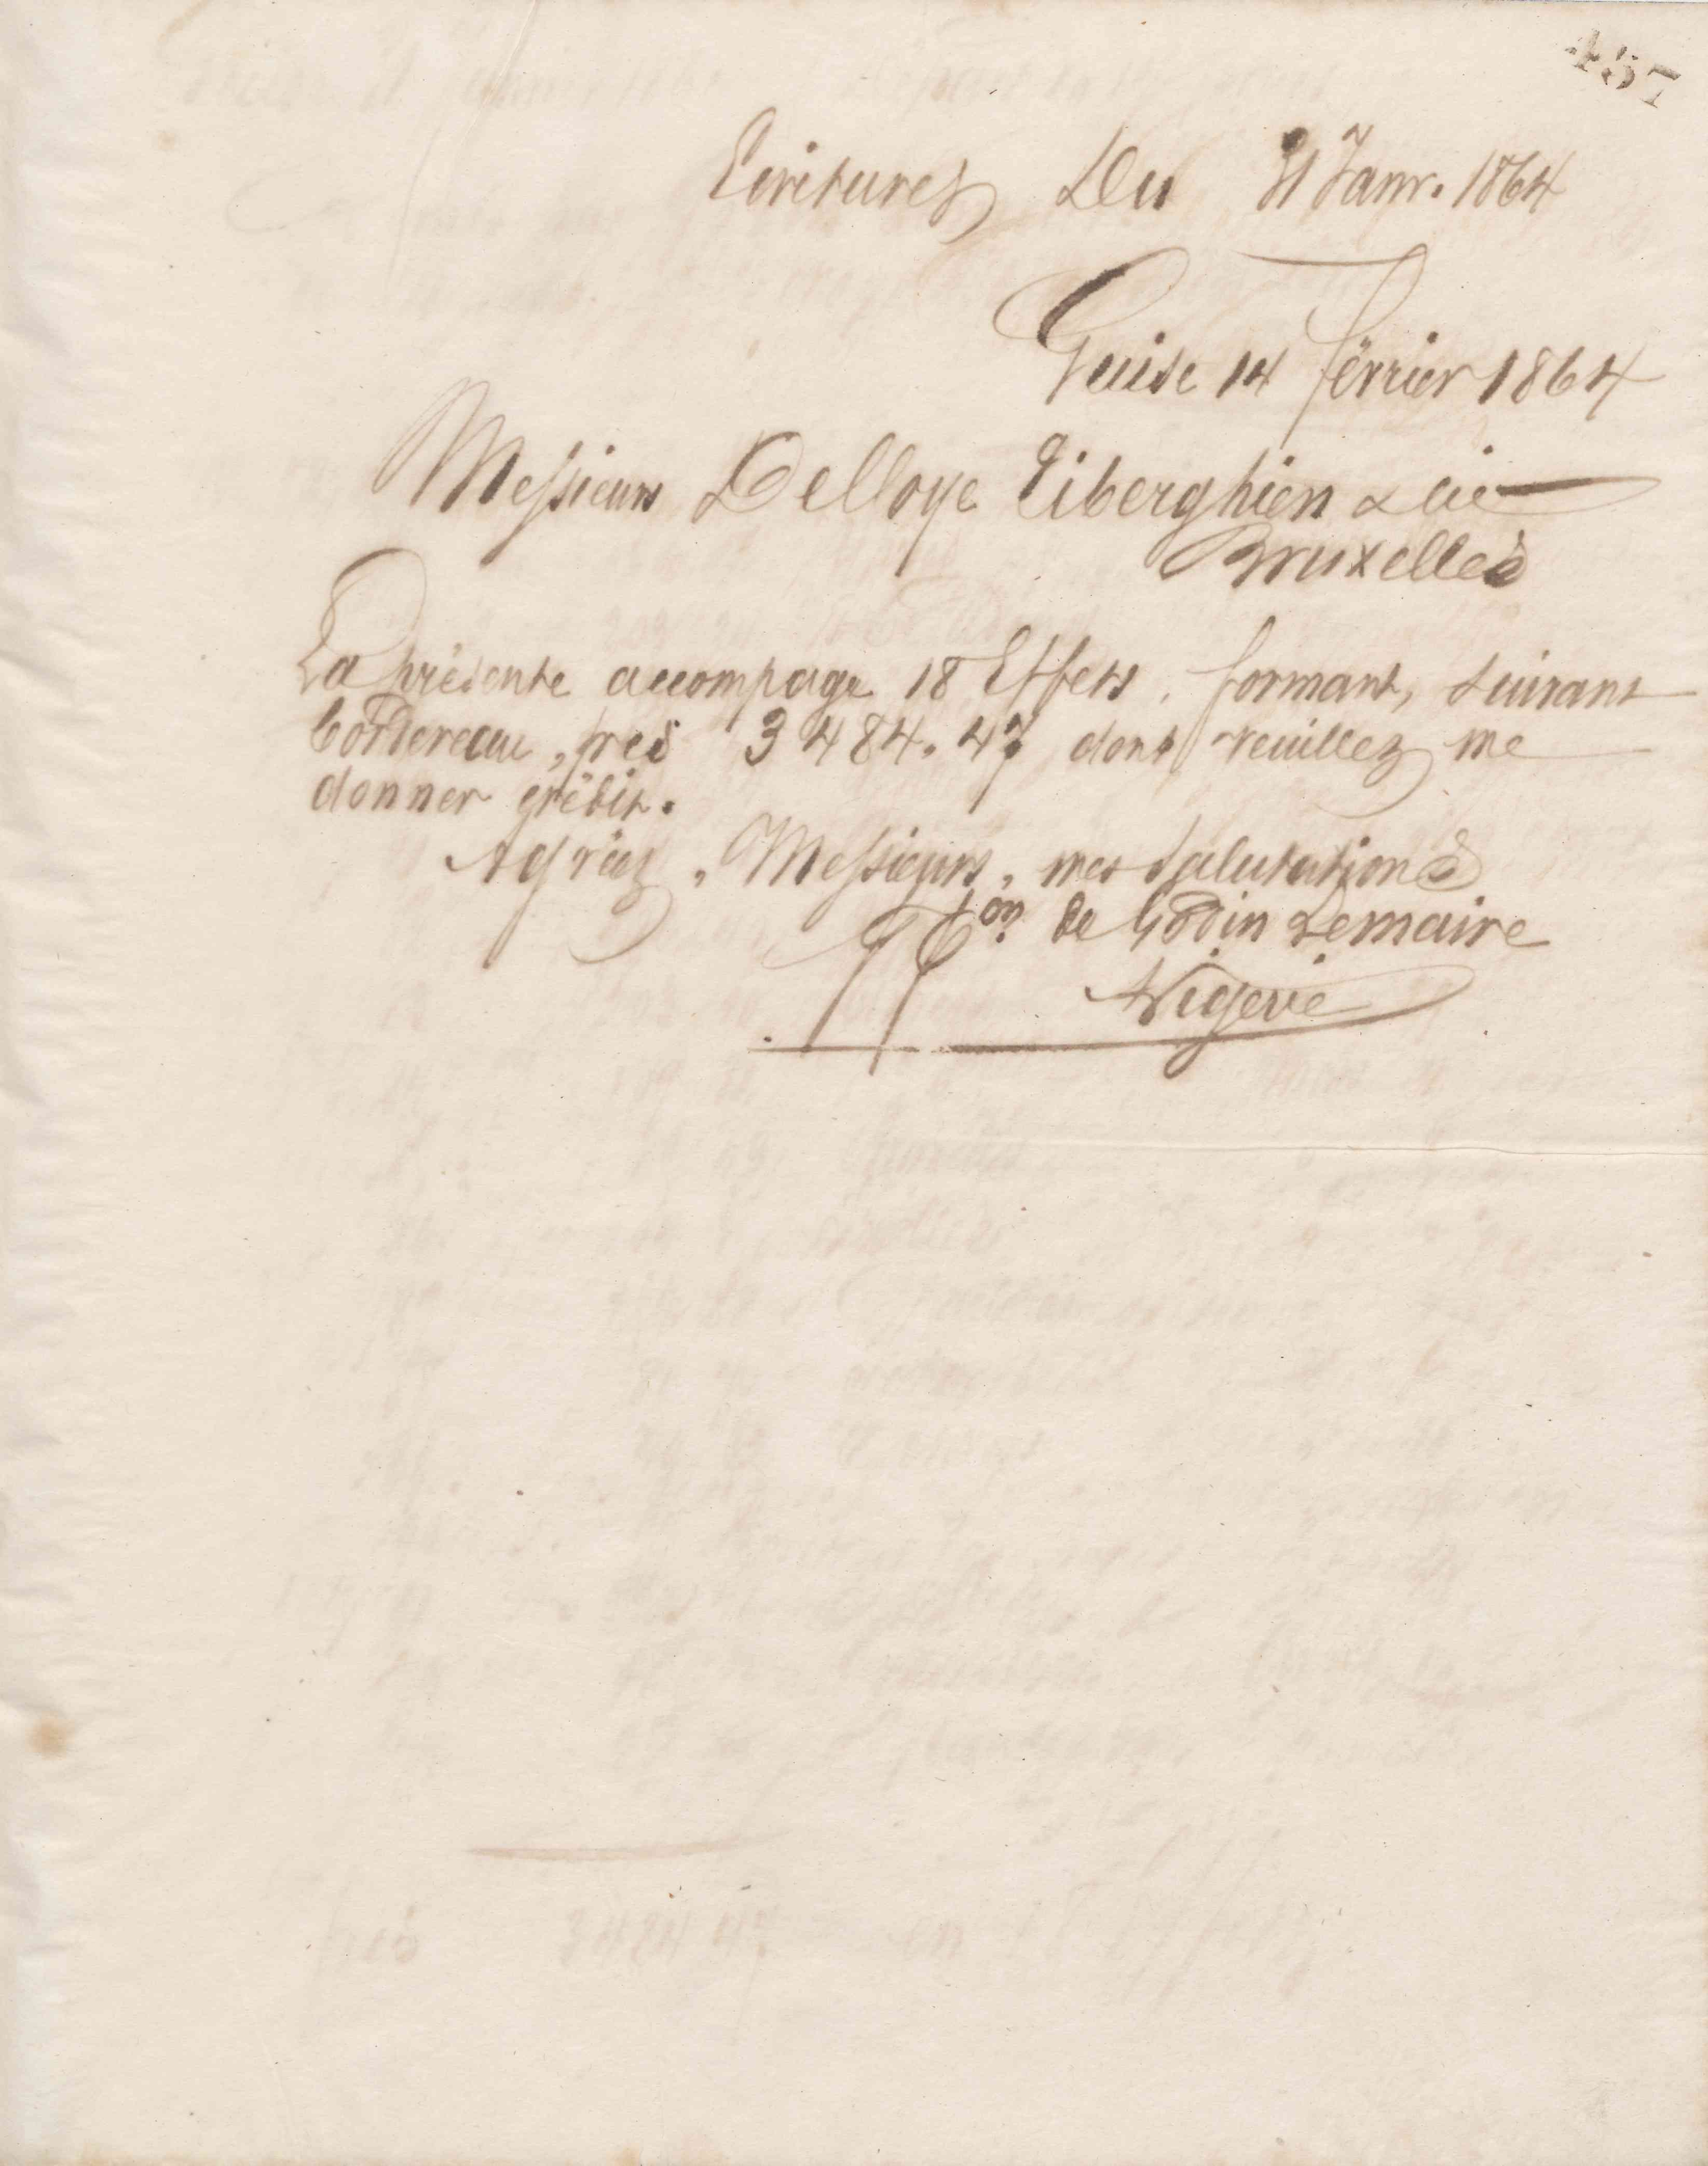 457
Ecritures Du 31 Janv. 1864
Guise 14 février 1864
Messieurs Delloye Tiberghien & cie
Bruxelles
La présente accompage 18 Effets, formant, suivant
bordereau, frcs 3484.47 dont veuillez me
donner crédit.
Agréez, Messieurs, mes salutations
Pp on de Godin Lemaire